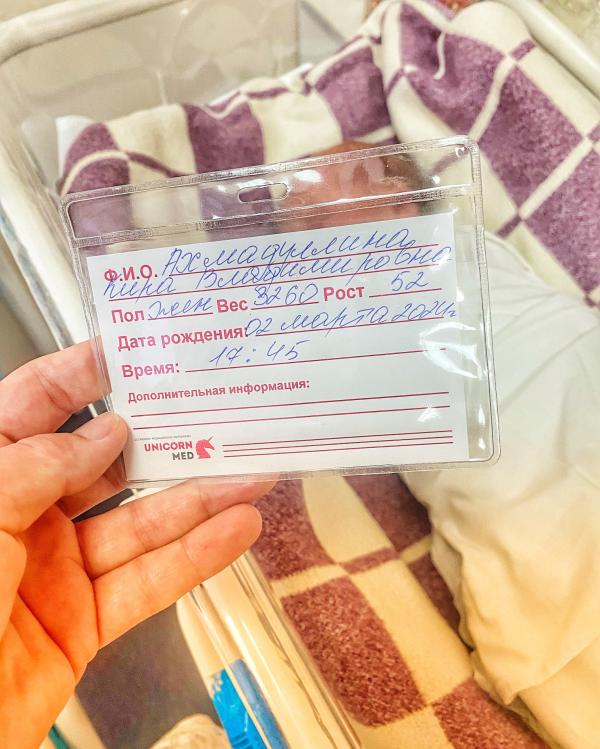 Ф.И.О. Ахмадуллина
Кира Владимировна
Пол жен Вес 3260 Рост 52
Дата рождения 02 марта 2024г
Время: 17:45
Дополнительная информация:
UNICORN
MED